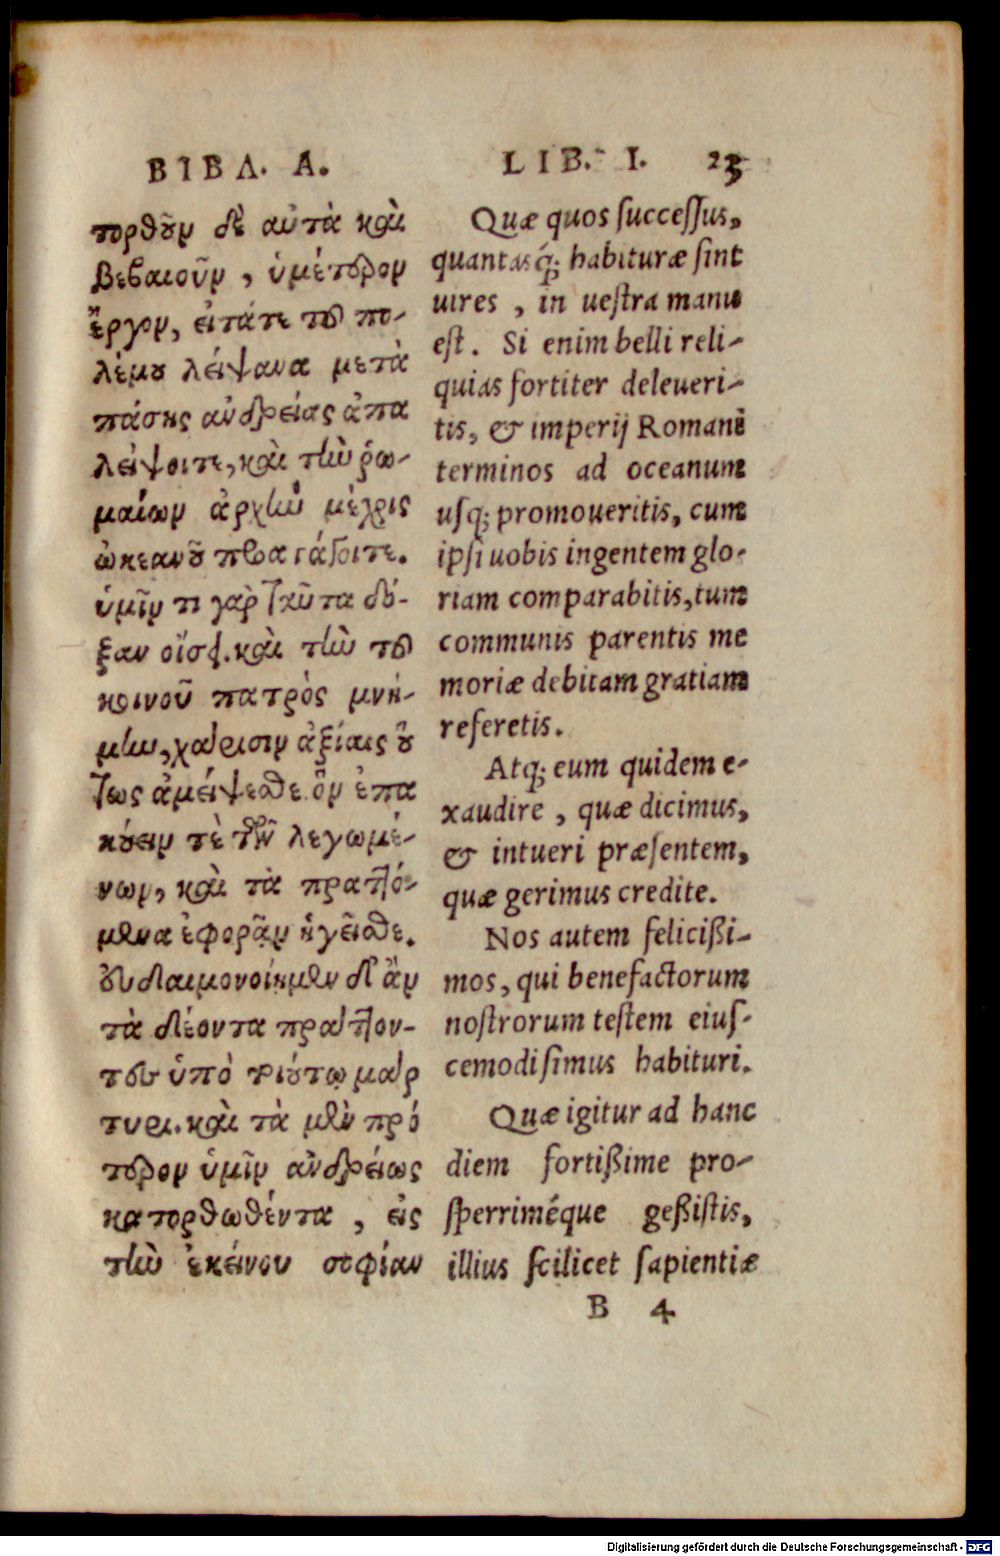 ΒΙΒΛ. Α.
τορθοῦν δὲ αὐτὰ καὶ
βεβαιοῦν, ὑμέτερον
ἔργον, εἰτάτε τοῦ πο-
λέμου λείψανα μετὰ
πάσης ἀνδρείας ἀπα
λείψοιτε, καὶ τὴν ῥω-
μαίων ἀρχὴν μέχρις
ὠκεανοῦ
ὑμῖν τι γὰρ ταῦτα δό-
ξαν οἴσει. καὶ τὴν τοῦ
κοινοῦ πατρὸς μνή-
μην, χάρισιν ἀξίαις οὕ
τως ἀμείψεσθε. ὃν ἐπα
κούειν τὲ τῶν λεγωμέ-
νων, καὶ τὰ πραττό-
μενα ἐφορᾷν ἡγεῖσθε.
τὰ δέοντα πράττον-
τες ὑπὸ τιούτῳ μάρ
τυρι. καὶ τὰ μὲν πρό
τερον ὑμῖν ἀνδρείως
κατορθωθέντα, εἰς
τὴν ἐκείνου σοφίαν
LIB. I. 23
Quæ quos succeſſus,
quantasq; habituræ ſint
uires, in ueſtra manu
eſt. Si enim belli reli-
quias fortiter deleueri-
tis, & imperij Romani
terminos ad oceanum
uſq; promoueritis, cum
ipſi uobis ingentem glo-
riam comparabitis, tum
communis parentis me
moriæ debitam gratiam
referetis.
Atq; eum quidem e-
xaudire, quæ dicimus,
& intueri præſentem,
quæ gerimus credite.
Nos autem feliciſſi-
mos, qui benefactorum
noſtrorum teſtem eiuſ-
cemodi ſimus habituri.
Quæ igitur ad hanc
diem fortißime pro-
ſperriméque geßiſtis,
illius ſcilicet ſapientiæ
B 4
Digitalisierung gefördert durch die Deutsche Forschungsgemeinschaft - DFG